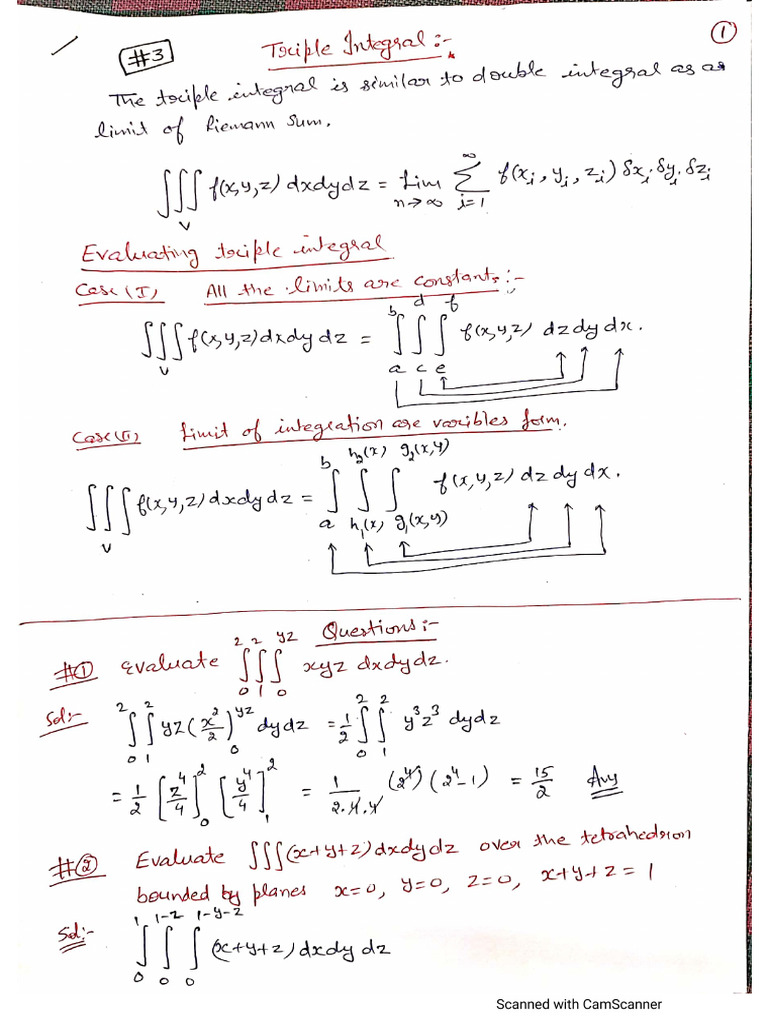 ①
#3 Triple Integral :-
The triple integral is similar to double integral as as
limit of Riemann Sum.
∫∫∫_V f(x,y,z) dxdydz = Lim_{n→∞} Σ_{i=1}^{∞} f(x_i, y_i, z_i) δx_i δy_i δz_i
Evaluating triple integral
Case (I) All the limits are constants :-
∫∫∫_V f(x,y,z) dxdydz = ∫_a^b ∫_c^d ∫_e^f f(x,y,z) dz dy dx.
Case (II) Limit of integration are varibles form.
∫∫∫_V f(x,y,z) dxdydz = ∫_a^b ∫_{h_1(x)}^{h_2(x)} ∫_{g_1(x,y)}^{g_2(x,y)} f(x,y,z) dz dy dx.
Questions :-
#① Evaluate ∫_0^2 ∫_1^2 ∫_0^{yz} xyz dxdydz.
Sol:- ∫_0^2 ∫_1^2 yz (x^2/2)_0^{yz} dydz = 1/2 ∫_0^2 ∫_1^2 y^3 z^3 dydz
= 1/2 [z^4/4]_0^2 [y^4/4]_1^2 = 1/(2.4.4) (2^4) (2^4-1) = 15/2 Ans
#② Evaluate ∫∫∫ (x+y+z) dxdydz over the tetrahedron
bounded by planes x=0, y=0, z=0, x+y+z=1
Sol:- ∫_0^1 ∫_0^{1-z} ∫_0^{1-y-z} (x+y+z) dxdy dz
Scanned with CamScanner